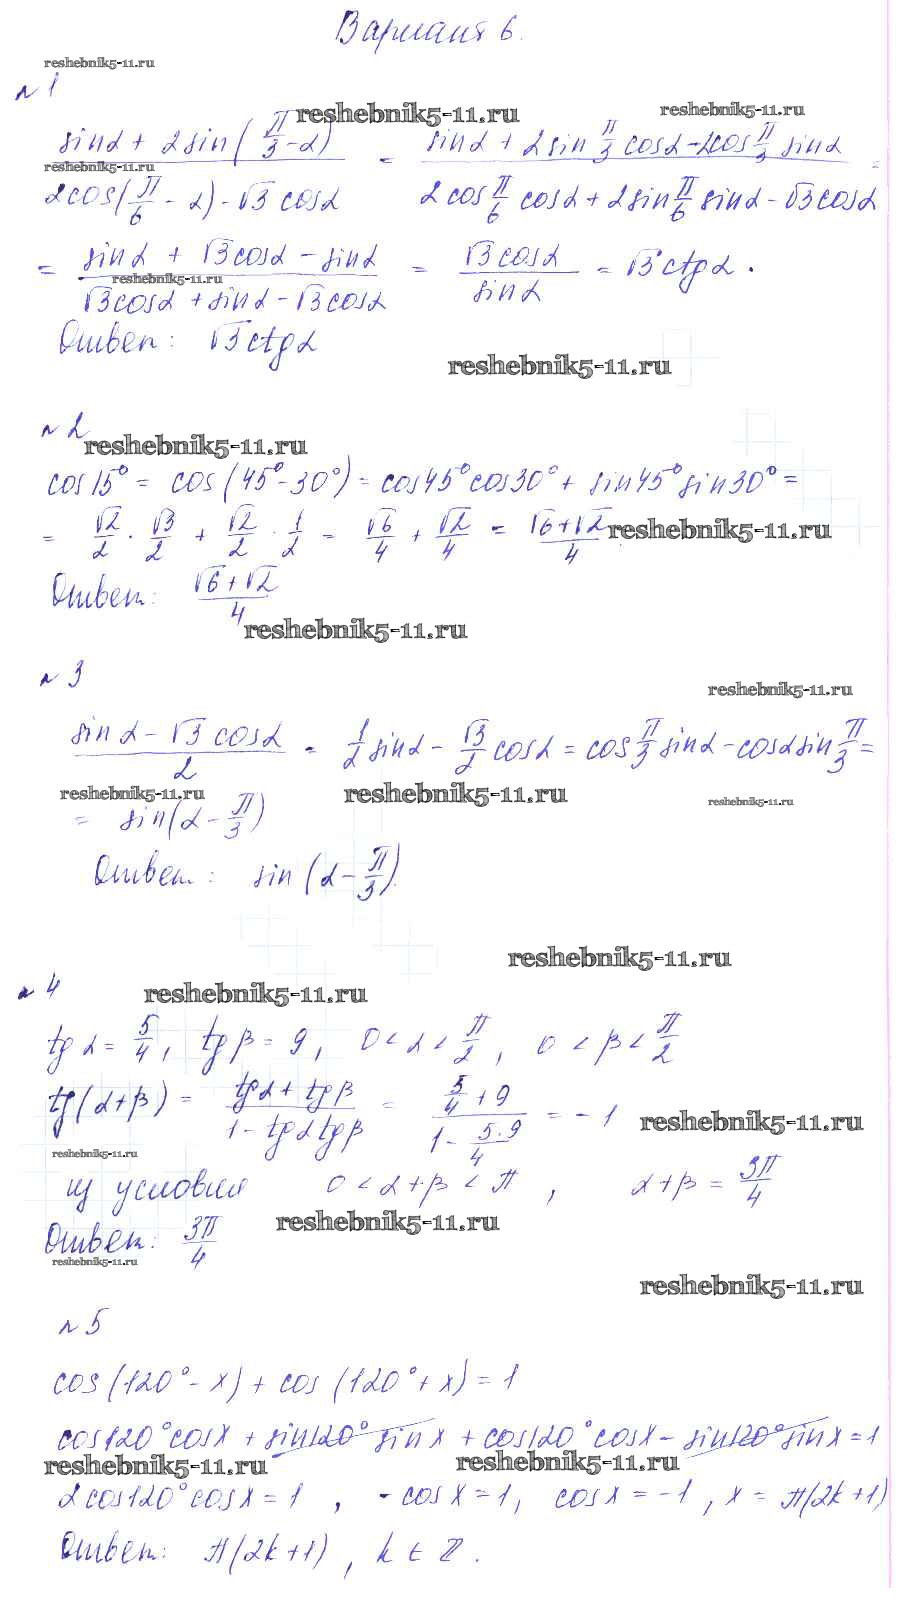 Вариант 6.
reshebnik5-11.ru
№1
reshebnik5-11.ru reshebnik5-11.ru
(sinα + 2sin(π/3 - α)) / (2cos(π/6 - α) - √3 cosα) = (sinα + 2sin π/3 cosα - 2cos π/3 sinα) / (2cos π/6 cosα + 2sin π/6 sinα - √3cosα) =
reshebnik5-11.ru
= (sinα + √3cosα - sinα) / (√3cosα + sinα - √3cosα) = √3cosα / sinα = √3ctgα.
reshebnik5-11.ru
Ответ: √3ctgα
reshebnik5-11.ru
№2
reshebnik5-11.ru
cos15° = cos(45° - 30°) = cos45°cos30° + sin45°sin30° =
= √2/2 · √3/2 + √2/2 · 1/2 = √6/4 + √2/4 = (√6+√2)/4
reshebnik5-11.ru
Ответ: (√6+√2)/4
reshebnik5-11.ru
№3
reshebnik5-11.ru
(sinα - √3cosα)/2 = 1/2 sinα - √3/2 cosα = cos π/3 sinα - cosα sin π/3 =
reshebnik5-11.ru reshebnik5-11.ru reshebnik5-11.ru
= sin(α - π/3)
Ответ: sin(α - π/3).
reshebnik5-11.ru
№4
reshebnik5-11.ru
tgα = 5/4, tgβ = 9, 0 < α < π/2, 0 < β < π/2
tg(α+β) = (tgα + tgβ)/(1 - tgαtgβ) = (5/4 + 9)/(1 - 5·9/4) = -1
reshebnik5-11.ru
reshebnik5-11.ru
из условия 0 < α+β < π, α+β = 3π/4
reshebnik5-11.ru
Ответ: 3π/4
reshebnik5-11.ru
reshebnik5-11.ru
№5
cos(120° - x) + cos(120° + x) = 1
cos120°cosx + sin120° sinx + cos120°cosx - sin120°sinx = 1
reshebnik5-11.ru reshebnik5-11.ru
2cos120°cosx = 1, -cosx = 1, cosx = -1, x = π(2k+1)
Ответ: π(2k+1), k ∈ ℤ.